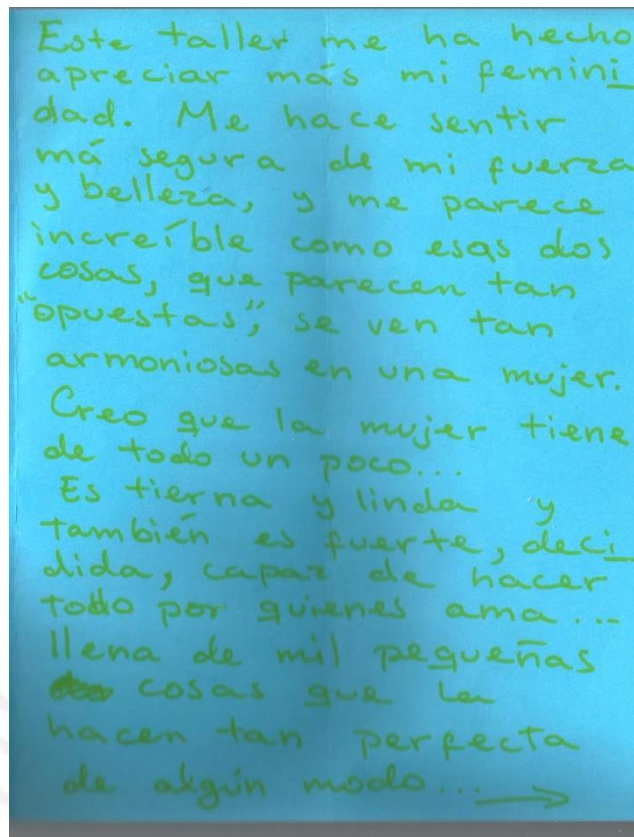 Este taller me ha hecho
apreciar más mi femini
dad. Me hace sentir
má segura de mi fuerza
y belleza, y me parece
increíble como esas dos
cosas, que parecen tan
"opuestas", se ven tan
armoniosas en una mujer.
Creo que la mujer tiene
de todo un poco...
Es tierna y linda y
también es fuerte, deci
dida, capaz de hacer
todo por quienes ama...
llena de mil pequeñas
cosas que la
hacen tan perfecta
de algún modo... →